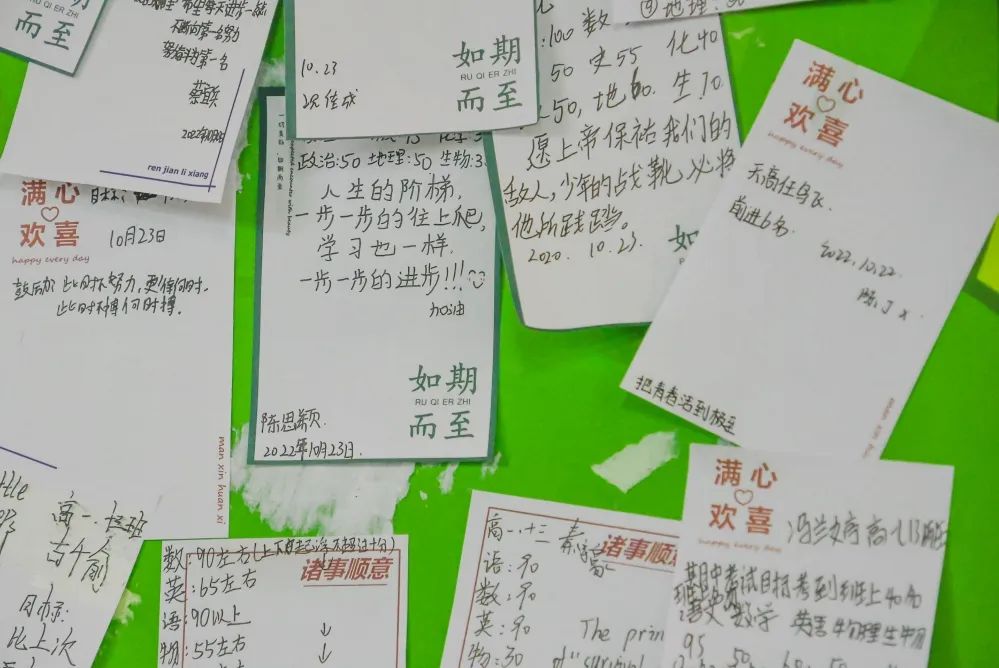 而至
努力
第一名
ren jian li xiang
10.23
如期
RU QI ER ZHI
而至
:100 数
50 史55 化40
50,地60. 生70.
愿上帝保祐我们的
敌人,少年的战靴必将
他所践踏。
2020. 10.23.
如
满心
欢喜
happy every day
前进6名
2022.10.22
把青春活到极至
满心
欢喜
happy every day
10月23日
鼓励: 此时不努力,更待何时.
此时不搏何时搏.
man xin huan xi
政治:50 地理:50 生物:3
人生的阶梯,
一步一步的往上爬,
学习也一样.
一步一步的进步!!!
加油
如期
RU QI ER ZHI
而至
陈思颖.
2022年10月23日.
ttle
高一.
目标:
比上次
数:90左右
诸事顺意
英:65左右
语:90以上
物:55左右
高一.十三
诸事顺意
语:90
数:90
英:90
The prin
物:30
of "survival
满心
欢喜
happy every day
期中考试目标考到班上40名
数学 英语 物理 生物
95 50 60 50